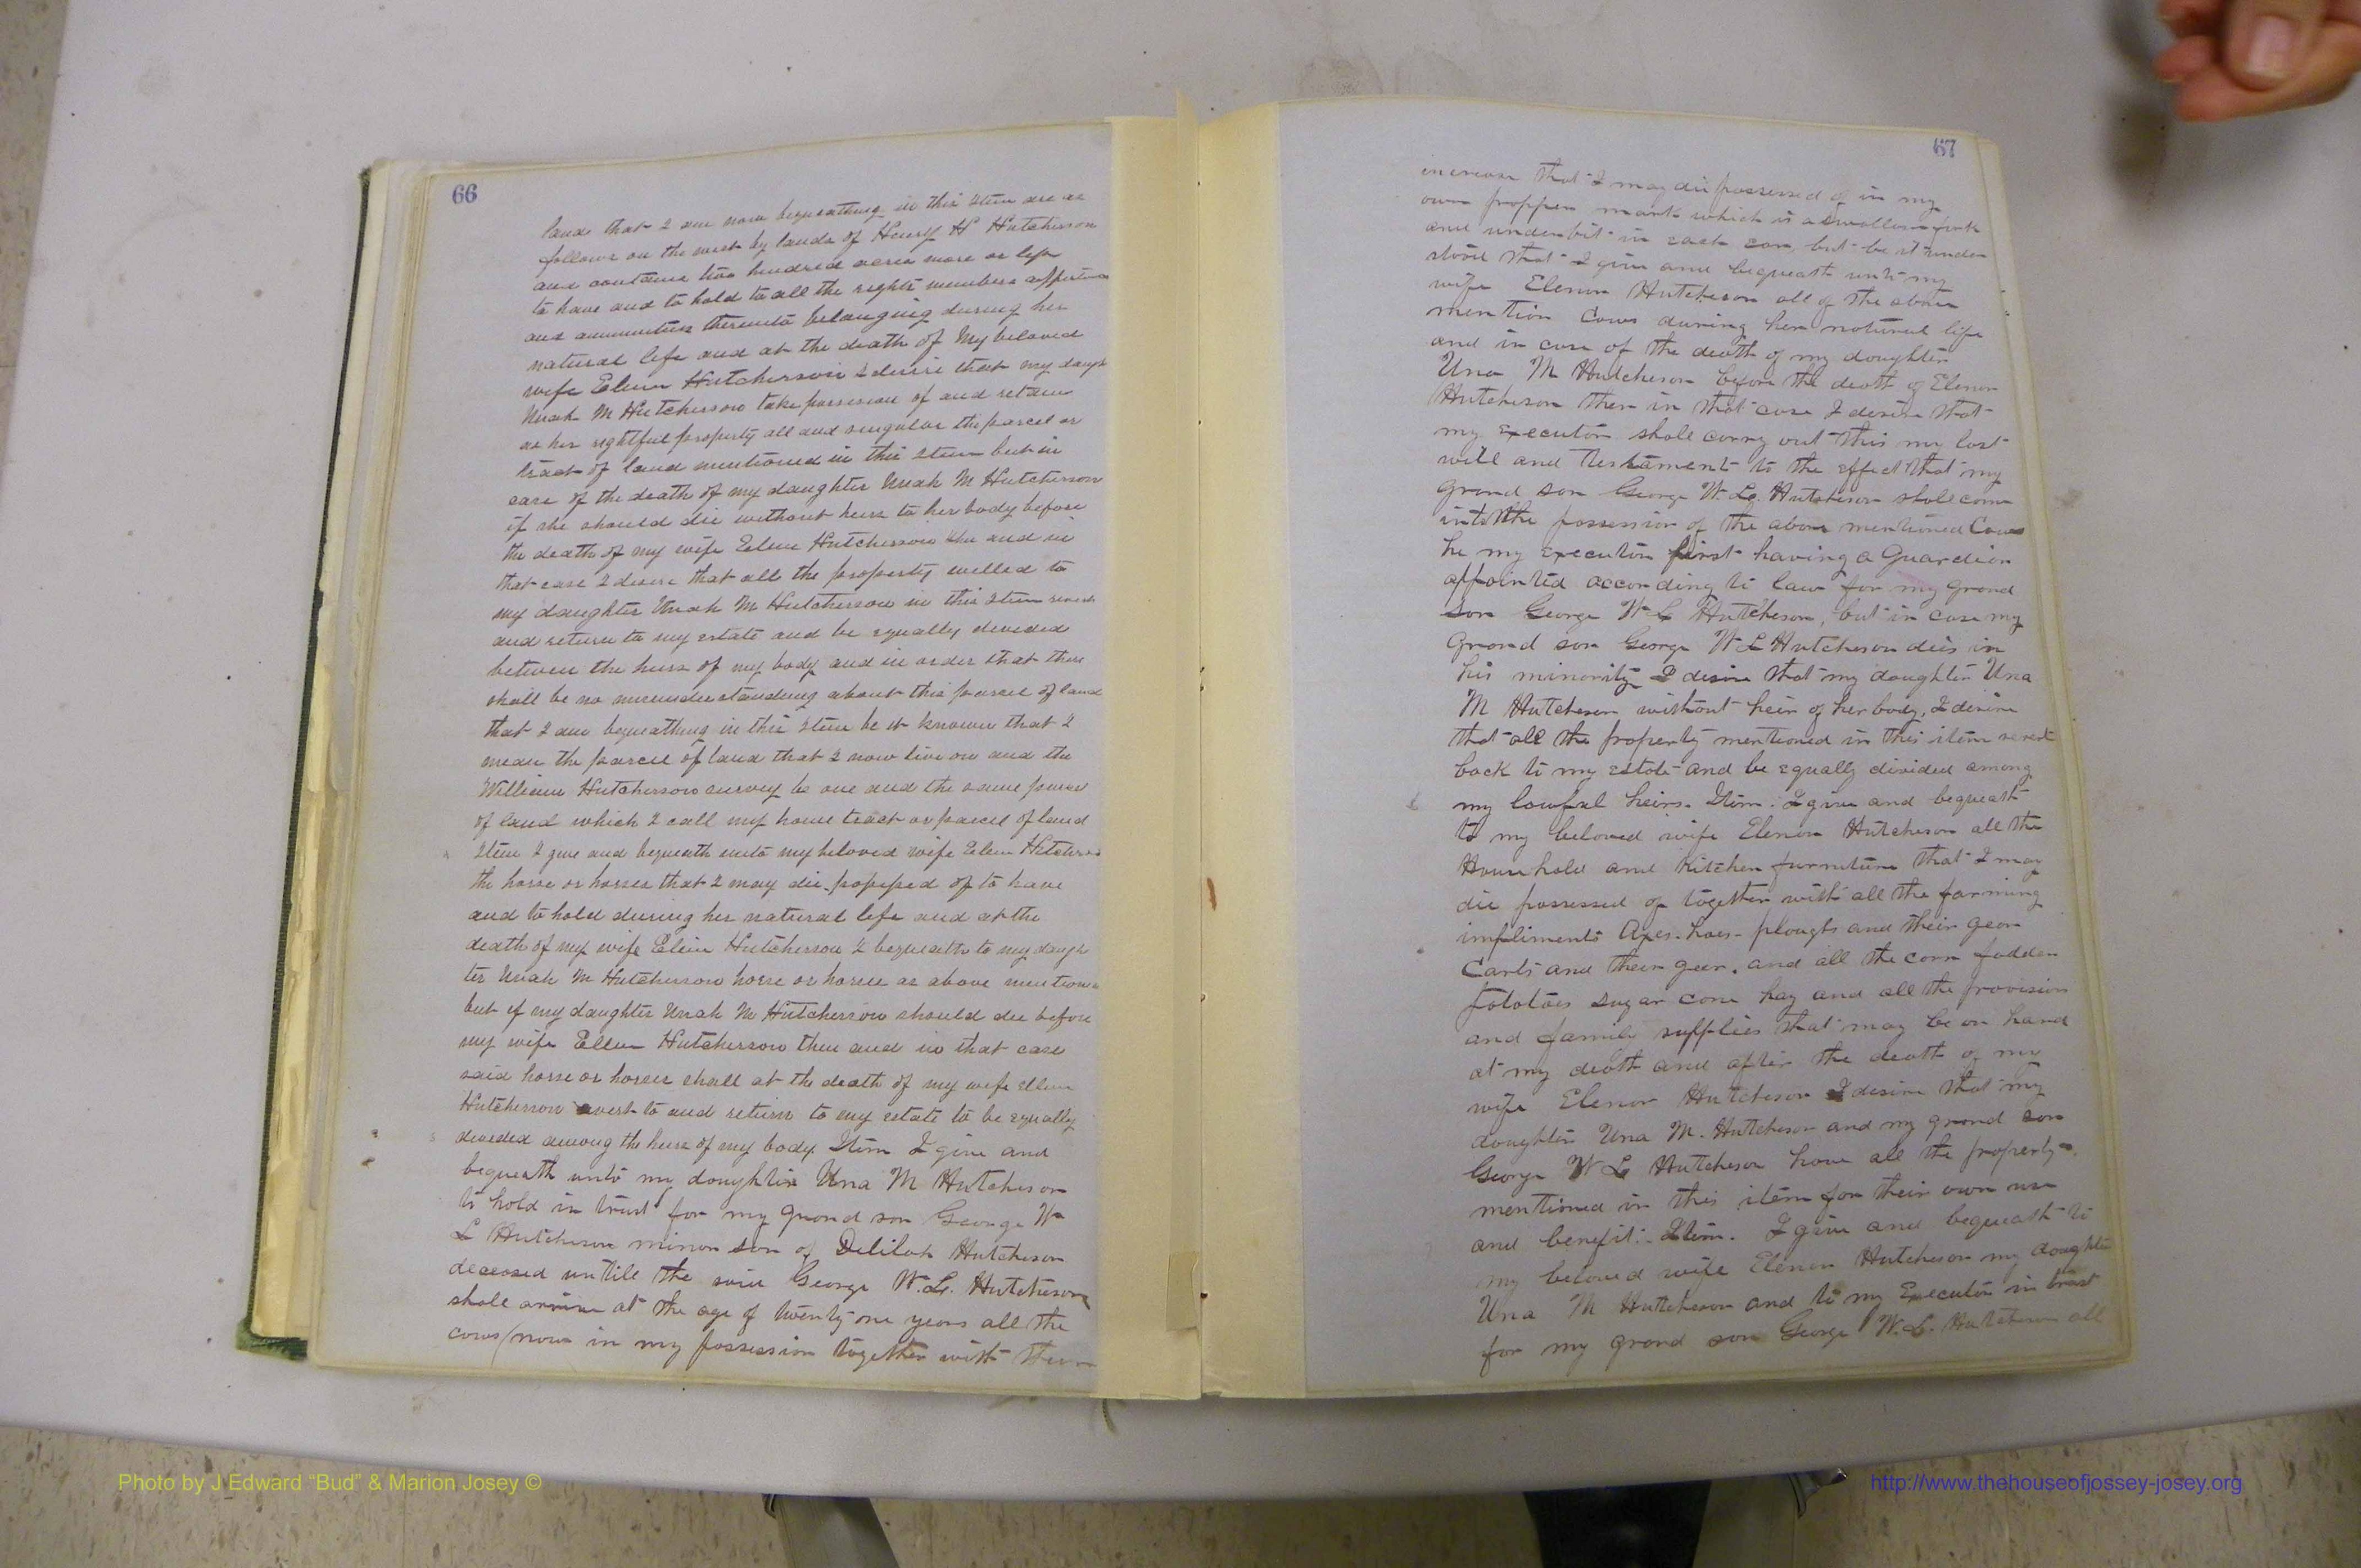 66
lands that I am now bequeathing in this Item are as
follows on the west by lands of Henry H Hutcherson
and contains two hundred acres more or less
to have and to hold to all the rights members appurten
and ammunities thereunto belonging during her
natural life and at the death of My beloved
wife Ellen Hutcherson I desire that my daugh
Unah M Hutcherson take possession of and retain
as her rightful property all and singular the parcel or
tract of land mentioned in this Item but in
case of the death of my daughter Unah M Hutcherson
if she should die without heirs to her body before
the death of my wife Ellen Hutcherson then and in
that case I desire that all the property willed to
my daughter Unah M Hutcherson in this Item revert
and return to my estate and be equally devided
between the heirs of my body and in order that there
shall be no misunderstanding about this parcel of land
that I am bequeathing in this Item be it known that I
mean the parcel of land that I now live on and the
William Hutcherson survey be one and the same parcel
of land which I call my home tract or parcel of land
Item I give and bequeath unto my beloved wife Ellen Hutcherson
the horse or horses that I may die possessed of to have
and to hold during her natural life and at the
death of my wife Ellen Hutcherson I bequeath to my daugh
ter Unah M Hutcherson horse or horses as above mention
but if my daughter Unah M Hutcherson should die before
my wife Ellen Hutcherson then and in that case
said horse or horses shall at the death of my wife Ellen
Hutcherson revert to and return to my estate to be equally
devided among the heirs of my body Item I give and
bequeath unto my doughter Una M Hutcheson
to hold in trust for my grand son George W
L Hutcheson minor son of Delilah Hutcheson
deceased untill the said George W. L. Hutcheson
shall arrive at the age of twenty one years all the
cows now in my possession together with their
67
increase that I may die possessed of in my
own propper mark which is a swallow fork
and underbit in each ear, but be it under
stood that I give and bequeath unto my
wife Elenor Hutcheson all of the above
mention Cows during her natural life
and in case of the death of my doughter
Una M Hutcheson before the death of Elenor
Hutcheson then in that case I desire that
my executor shall carry out this my last
will and testament to the effect that my
grand son George W. L. Hutcheson shall come
into the possession of the above mentioned Cows
he my executor first having a Guardian
appointed according to law for my grand
son George W L Hutcheson, but in case my
grand son George W L Hutcheson dies in
his minority I desire that my doughter Una
M Hutcheson without heir of her body, I desire
that all the property mentioned in this item revert
back to my estate and be equally divided among
my lawful heirs. Item. I give and bequeath
to my beloved wife Elenor Hutcheson all the
House hold and Kitchen furniture that I may
die possessed of together with all the farming
impliments Axes. hoes. ploughs and their gear
Carts and their gear. and all the corn fodder
potatoes sugar cane hay and all the provisions
and family supplies that may be on hand
at my death and after the death of my
wife Elenor Hutcheson I desire that my
doughter Una M. Hutcheson and my grand son
George W L Hutcheson have all the property
mentioned in this item for their own use
and benefit. Item. I give and bequeath to
my beloved wife Elenor Hutcheson my doughter
Una M Hutcheson and to my Executor in trust
for my grand son George W. L. Hutcheson all
Photo by J Edward "Bud" & Marion Josey ©
http://www.thehouseofjossey-josey.org